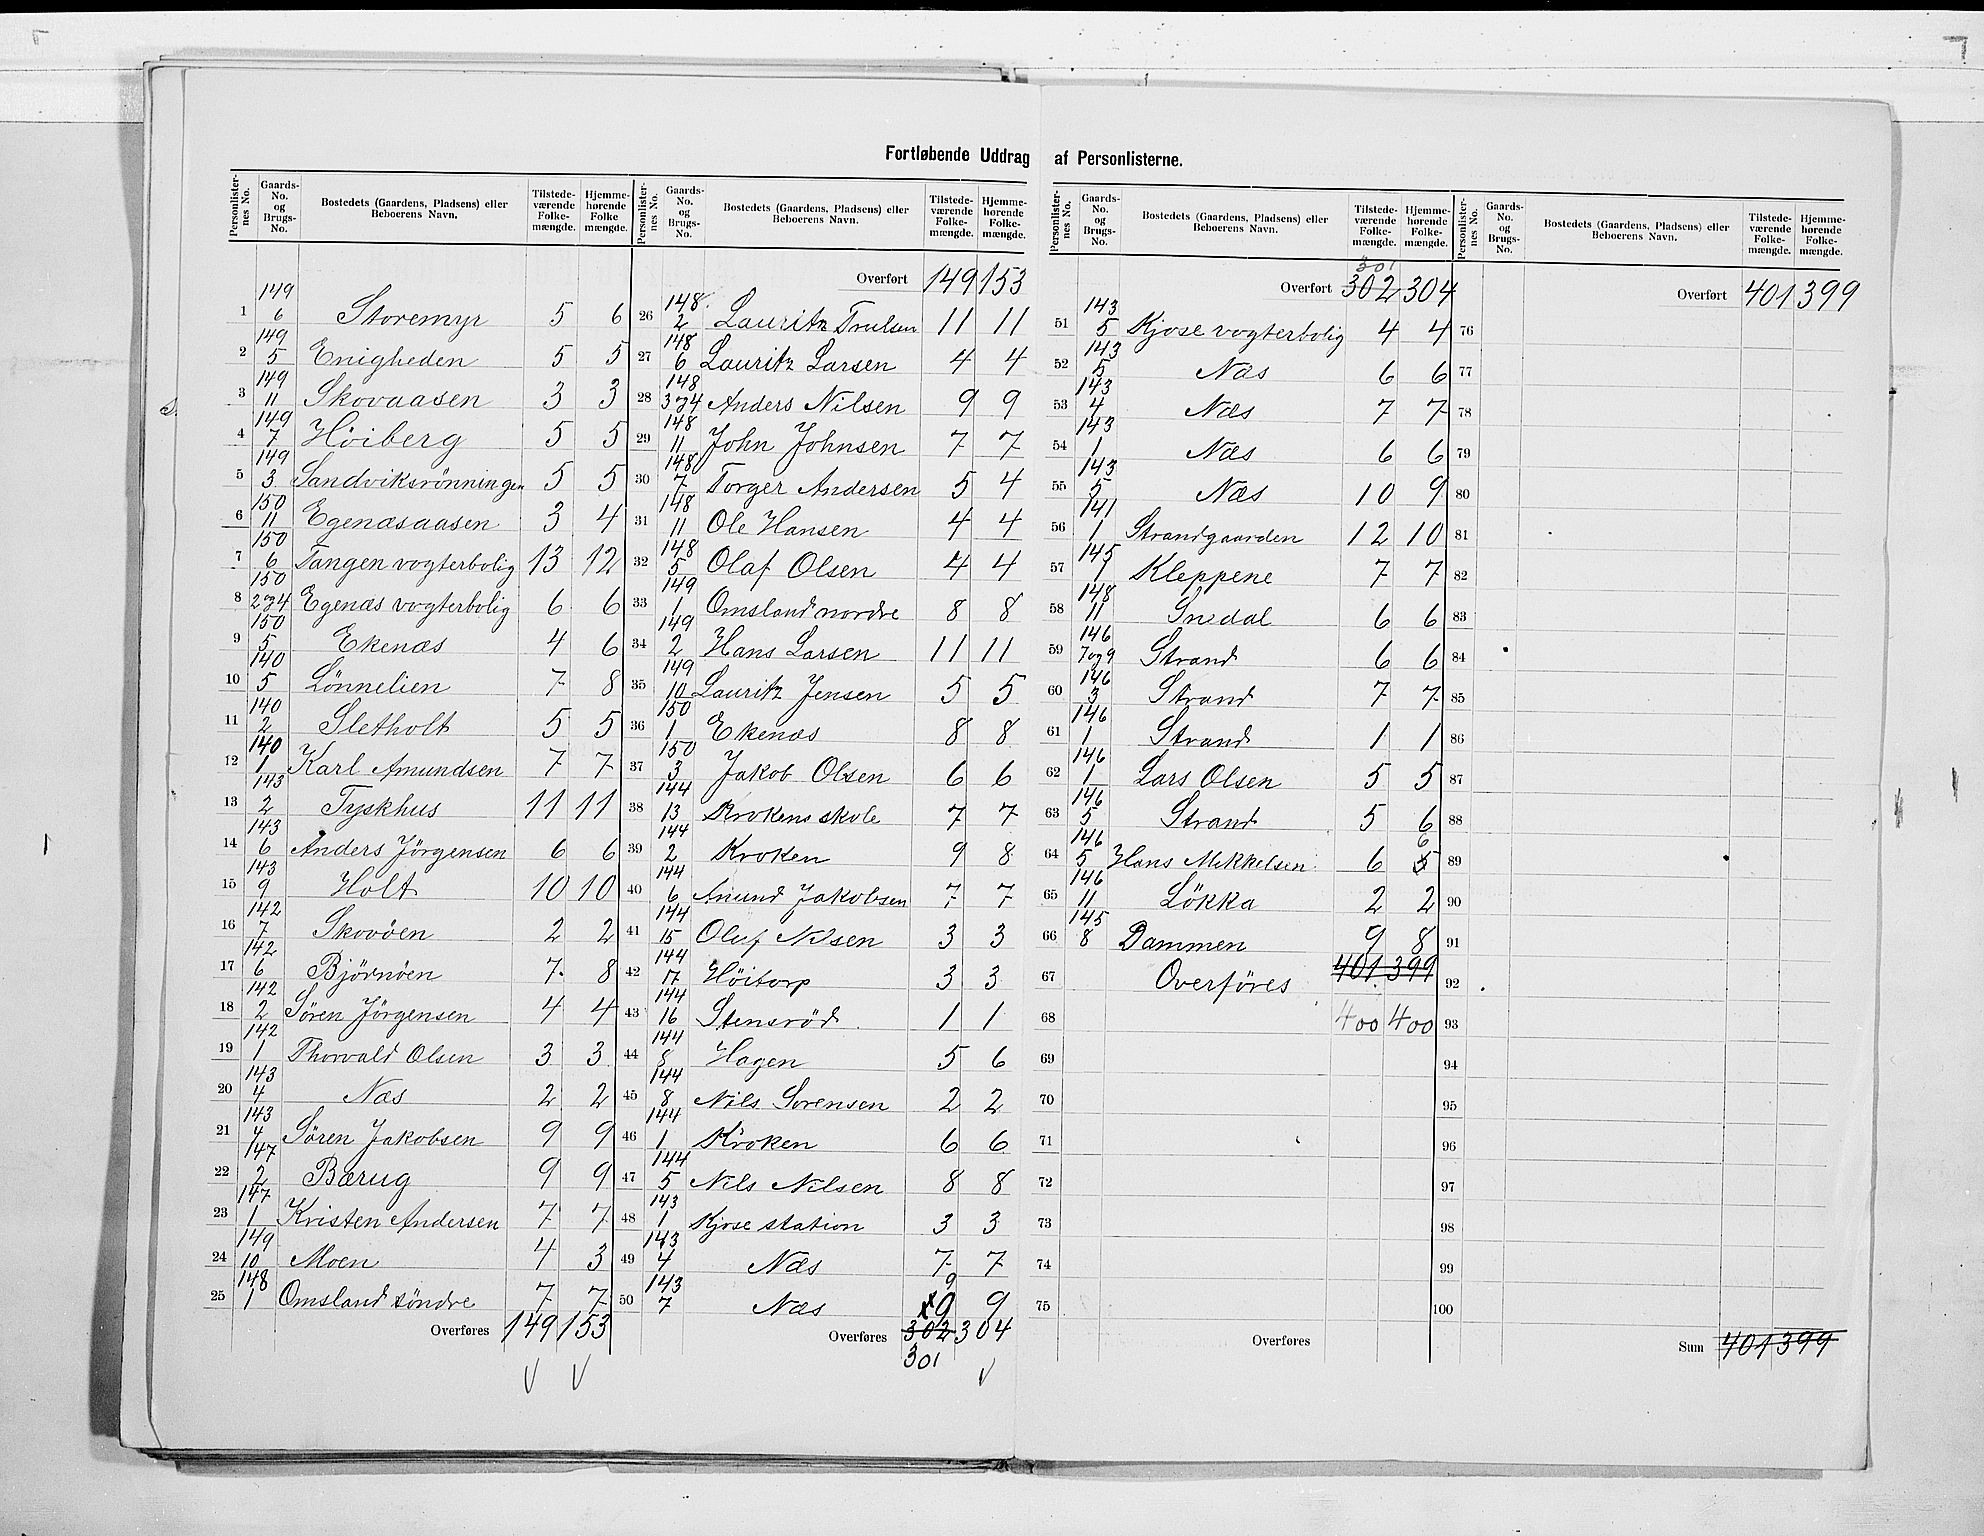 Fortløbende Uddrag af Personlisterne.
Personlister-nes No. | Gaards-No. og Brugs-No. | Bostedets (Gaardens, Pladsens) eller Beboerens Navn. | Tilstede-værende Folke-mængde. | Hjemme-hørende Folke mængde.
1 | 149 6 | Storemyr | 5 | 6
2 | 149 5 | Enigheden | 5 | 5
3 | 149 11 | Skovaasen | 3 | 3
4 | 149 7 | Höiberg | 5 | 5
5 | 149 3 | Sandviksrönningen | 5 | 5
6 | 150 11 | Egenæsaasen | 3 | 4
7 | 150 6 | Tangen vogterbolig | 13 | 12
8 | 150 2og4 | Egenæs vogterbolig | 6 | 6
9 | 150 5 | Ekenæs | 4 | 6
10 | 140 5 | Lönnelien | 7 | 8
11 | 140 2 | Sletholt | 5 | 5
12 | 140 1 | Karl Amundsen | 7 | 7
13 | 143 2 | Tyskhus | 11 | 11
14 | 143 6 | Anders Jörgensen | 6 | 6
15 | 143 9 | Holt | 10 | 10
16 | 142 7 | Skovöen | 2 | 2
17 | 142 6 | Björnöen | 7 | 8
18 | 142 2 | Sören Jörgensen | 4 | 4
19 | 142 1 | Thorvald Olsen | 3 | 3
20 | 143 4 | Næs | 2 | 2
21 | 143 4 | Sören Jakobsen | 9 | 9
22 | 147 2 | Bærug | 9 | 9
23 | 147 1 | Kristen Andersen | 7 | 7
24 | 149 10 | Moen | 4 | 3
25 | 148 1 | Omsland söndre | 7 | 7
Overføres 149 153
Personlister-nes No. | Gaards-No. og Brugs-No. | Bostedets (Gaardens, Pladsens) eller Beboerens Navn. | Tilstede-værende Folke-mængde. | Hjemme-hørende Folke-mængde.
Overført 149 153
26 | 148 2 | Lauritz Trulsen | 11 | 11
27 | 148 6 | Lauritz Larsen | 4 | 4
28 | 148 3og4 | Anders Nilsen | 9 | 9
29 | 148 11 | John Johnsen | 7 | 7
30 | 148 7 | Torger Andersen | 5 | 4
31 | 148 11 | Ole Hansen | 4 | 4
32 | 148 5 | Olaf Olsen | 4 | 4
33 | 149 1 | Omsland nordre | 8 | 8
34 | 149 2 | Hans Larsen | 11 | 11
35 | 149 10 | Lauritz Jensen | 5 | 5
36 | 150 1 | Ekenæs | 8 | 8
37 | 150 3 | Jakob Olsen | 6 | 6
38 | 144 13 | Krokens skole | 7 | 7
39 | 144 2 | Kroken | 9 | 8
40 | 144 6 | Amund Jakobsen | 7 | 7
41 | 144 15 | Oluf Nilsen | 3 | 3
42 | 144 17 | Höitorp | 3 | 3
43 | 144 16 | Stensröd | 1 | 1
44 | 144 8 | Hagen | 5 | 6
45 | 144 8 | Nils Sorensen | 2 | 2
46 | 144 1 | Kroken | 6 | 6
47 | 144 5 | Nils Nilsen | 8 | 8
48 | 143 1 | Kjose station | 3 | 3
49 | 143 4 | Næs | 7 | 7
50 | 143 7 | Næs | 9 9 | 9
Overføres 302 304
301
Personlister-nes No. | Gaards-No. og Brugs-No. | Bostedets (Gaardens, Pladsens) eller Beboerens Navn. | Tilstede-værende Folke-mængde. | Hjemme-hørende Folke-mængde.
301
Overført 302 304
51 | 143 5 | Kjose vogterbolig | 4 | 4
52 | 143 5 | Næs | 6 | 6
53 | 143 4 | Næs | 7 | 7
54 | 143 1 | Næs | 6 | 6
55 | 143 5 | Næs | 10 | 9
56 | 141 1 | Strandgaarden | 12 | 10
57 | 145 1 | Kleppene | 7 | 7
58 | 148 11 | Snedal | 6 | 6
59 | 146 7og9 | Strand | 6 | 6
60 | 146 3 | Strand | 7 | 7
61 | 146 1 | Strand | 1 | 1
62 | 146 1 | Lars Olsen | 5 | 5
63 | 146 5 | Strand | 5 | 6
64 | 146 5 | Hans Mikkelsen | 6 | 6 5
65 | 146 11 | Lökka | 2 | 2
66 | 145 8 | Dammen | 9 | 8
67 | Overföres | 401 | 399
68 | 400 | 400
69
70
71
72
73
74
75
Overføres
Personlister-nes No. | Gaards-No. og Brugs-No. | Bostedets (Gaardens, Pladsens) eller Beboerens Navn. | Tilstede-værende Folke-mængde. | Hjemme-hørende Folke-mængde.
Overført 401 399
76
77
78
79
80
81
82
83
84
85
86
87
88
89
90
91
92
93
94
95
96
97
98
99
100
Sum 401 399